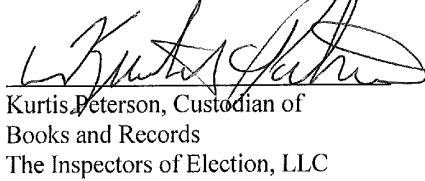 Kurtis Peterson, Custodian of
Books and Records
The Inspectors of Election, LLC